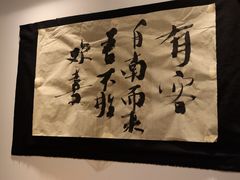 有客
自南而来
吾不胜
欢喜